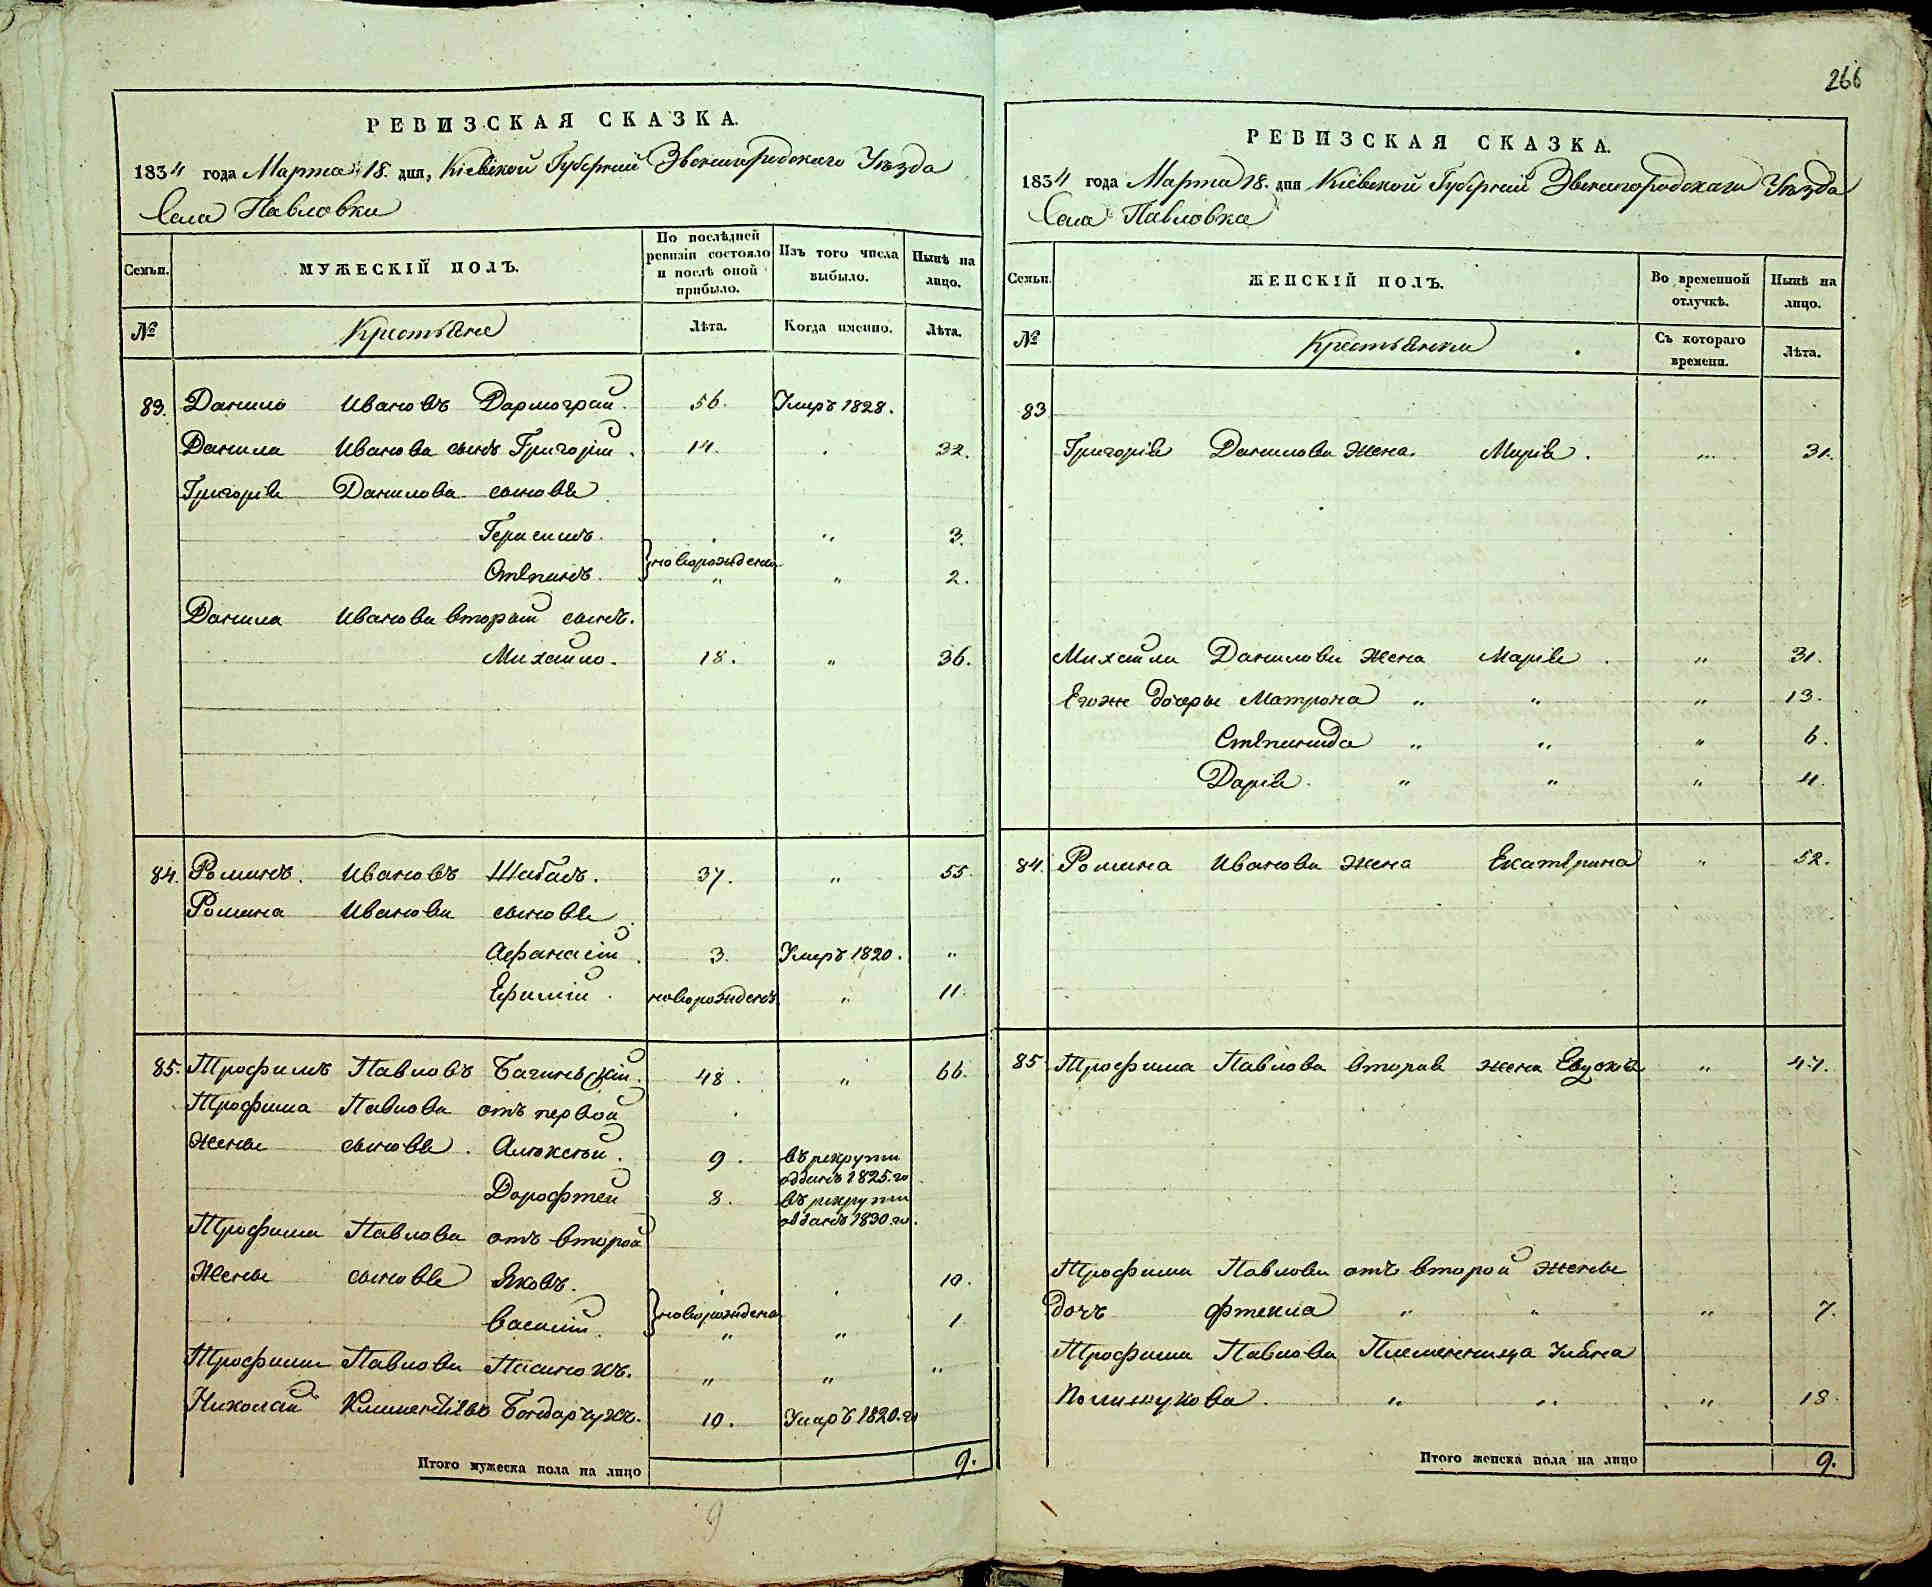 266
РЕВИЗСКАЯ СКАЗКА.
1834 года Марта 18. дня, Кіевской Губерніи Звенигородскаго Уѣзда
Села Павловки
Семьи. МУЖЕСКІЙ ПОЛЪ. По послѣдней ревизіи состояло и послѣ оной прибыло. Изъ того числа выбыло. Нынѣ на лицо.
№ Крестьяне Лѣта. Когда именно. Лѣта.
83. Данило Ивановъ Дармограй. 56. Умеръ 1828.
Данила Иванова сынъ Григорій. 14. 32.
Григорія Данилова сыновья
Герасимъ. " 3.
Степанъ. } новорожденн. " " 2.
Данила Иванова вторый сынъ.
Михайло. 18. " 36.
84. Романъ Ивановъ Шабасъ. 37. " 55.
Романа Иванова сыновья
Афанасій. 3. Умеръ 1820. "
Ефимій. новорожденъ " 11.
85. Трофимъ Павловъ 48. " 66.
Трофима Павлова отъ первой
жены сыновья. Алексѣй. 9. въ рекруты отданъ 1825.го
Дорофтей 8. въ рекруты отданъ 1830.го.
Трофима Павлова отъ второй
жены сыновья Яковъ. 10.
Василій. } новорожденн " " 1
Трофима Павлова Пасынокъ. " " "
Николай Климентіевъ Бондарчукъ. 10. Умеръ 1820.го
Итого мужеска пола на лицо 9.
РЕВИЗСКАЯ СКАЗКА.
1834 года Марта 18. дня Кіевской Губерніи Звенигородскаго Уѣзда
Села Павловки
Семьи. ЖЕНСКІЙ ПОЛЪ. Во временной отлучкѣ. Нынѣ на лицо.
№ Крестьянки Съ котораго времени. Лѣта.
83
Григорія Данилова жена. Марія. " 31.
Михайла Данилова жена Марія. " 31.
Егожъ дочеры Матрона " " " 13.
Степанида " " " 6.
Дарія. " " " 4.
84. Романа Иванова жена Екатерина " 52.
85 Трофима Павлова вторая жена " 47.
Трофима Павлова отъ второй жены
дочь Фтекла " " " 7.
Трофима Павлова Племенница Уляна
Полищукова. " " " 18.
Итого женска пола на лицо 9.